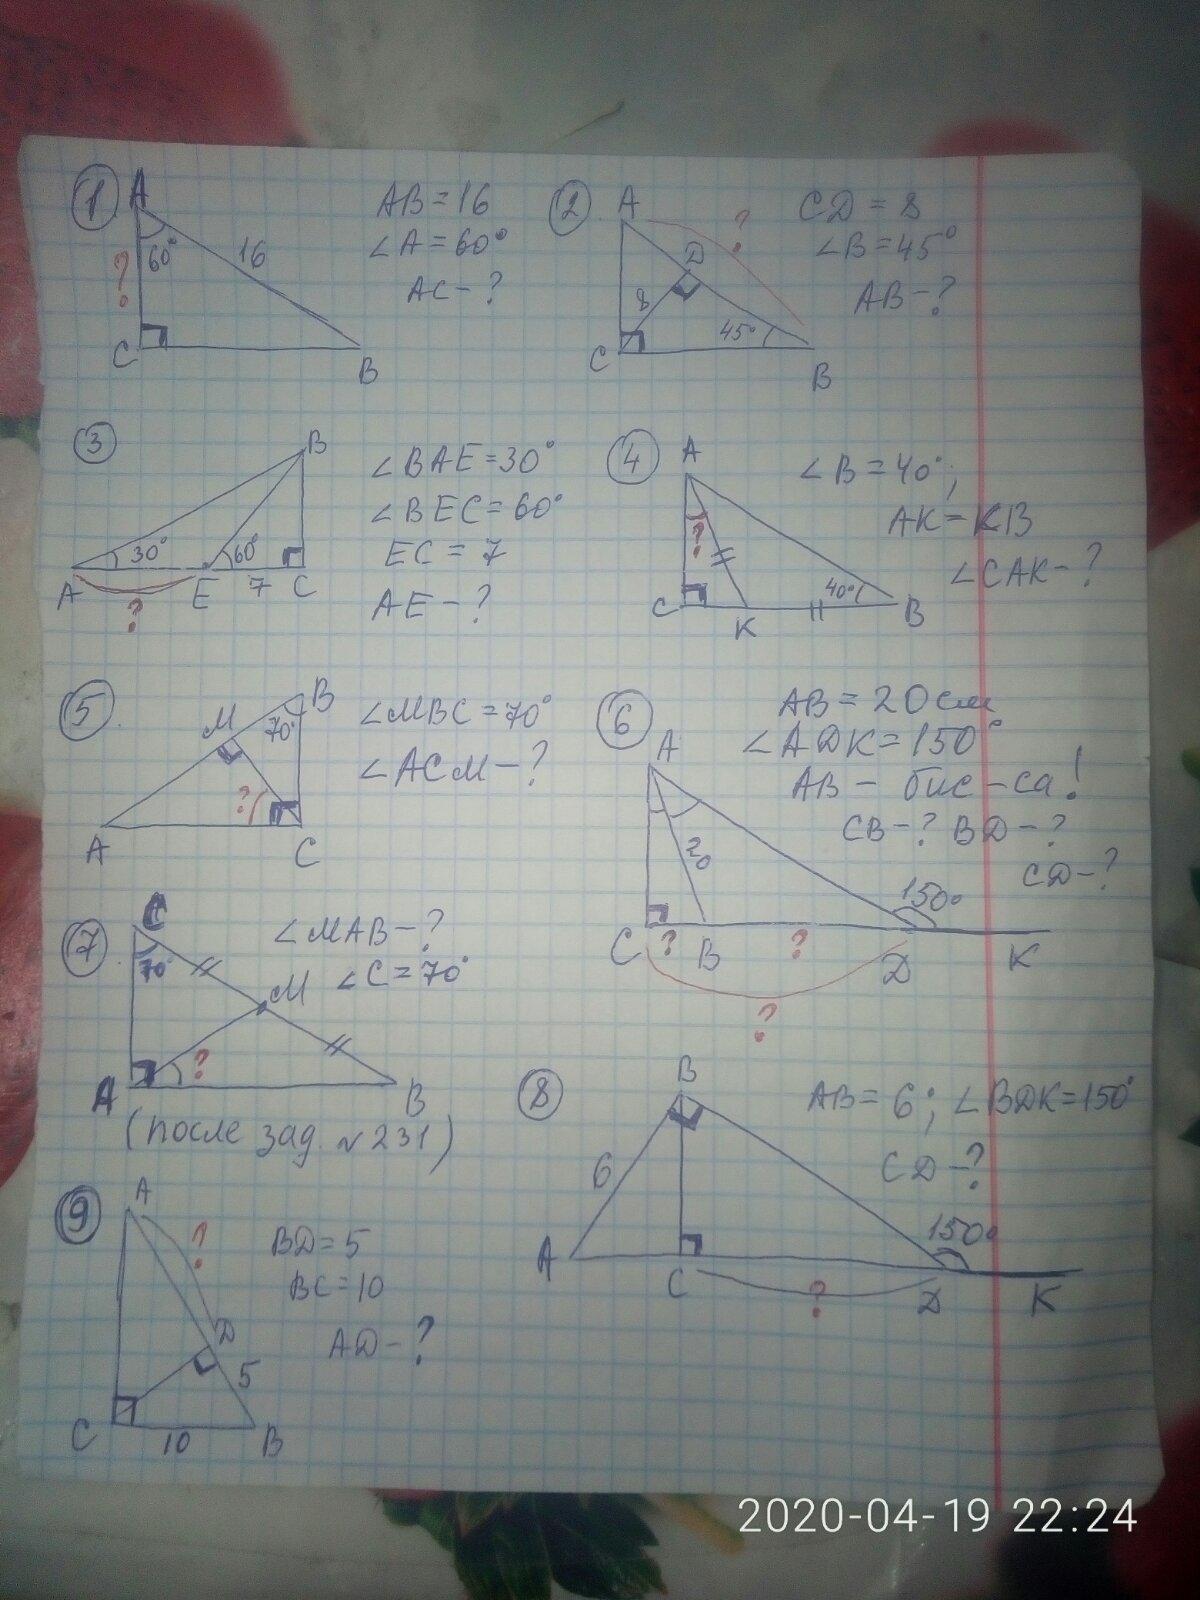 ① A AB = 16
∠A = 60°
AC - ?
60° 16 ?
C B
② A ? CD = 8
∠B = 45°
AB - ?
D 8 45°
C B
③ B ∠BAE = 30°
∠BEC = 60°
EC = 7
AE - ?
30° 60°
A E 7 C
?
④ A ∠B = 40°;
AK = KB
∠CAK - ?
? 40°
C K B
⑤ M B ∠MBC = 70°
70° ∠ACM - ?
?
A C
⑥ AB = 20 см
∠ADK = 150°
AB - бис-са!
CB - ? BD - ?
CD - ?
A 20 150°
C ? B ? D K
?
⑦ C ∠MAB - ?
70° M ∠C = 70°
?
A B
(после зад. №231)
⑧ B AB = 6; ∠BDK = 150°
CD - ?
6 150°
A C ? D K
⑨ A ? BD = 5
BC = 10
AD - ?
D 5
C 10 B
2020-04-19 22:24